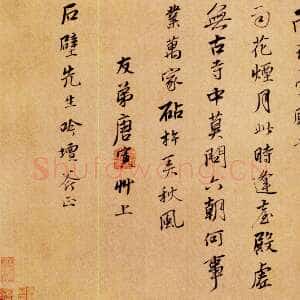 花煙月此時逢臺殿虛
無古寺中莫問六朝何事
業萬家砧杵秋風
友弟唐寅艸上
石壁先生吟壇正